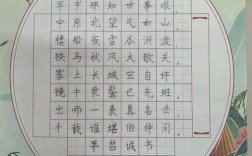 早岁那知世事艰，
中原北望气如山。
楼船夜雪瓜洲渡，
铁马秋风大散关。
塞上长城空自许，
镜中衰鬓已先斑。
出师一表真名世，
千载谁堪伯仲间。